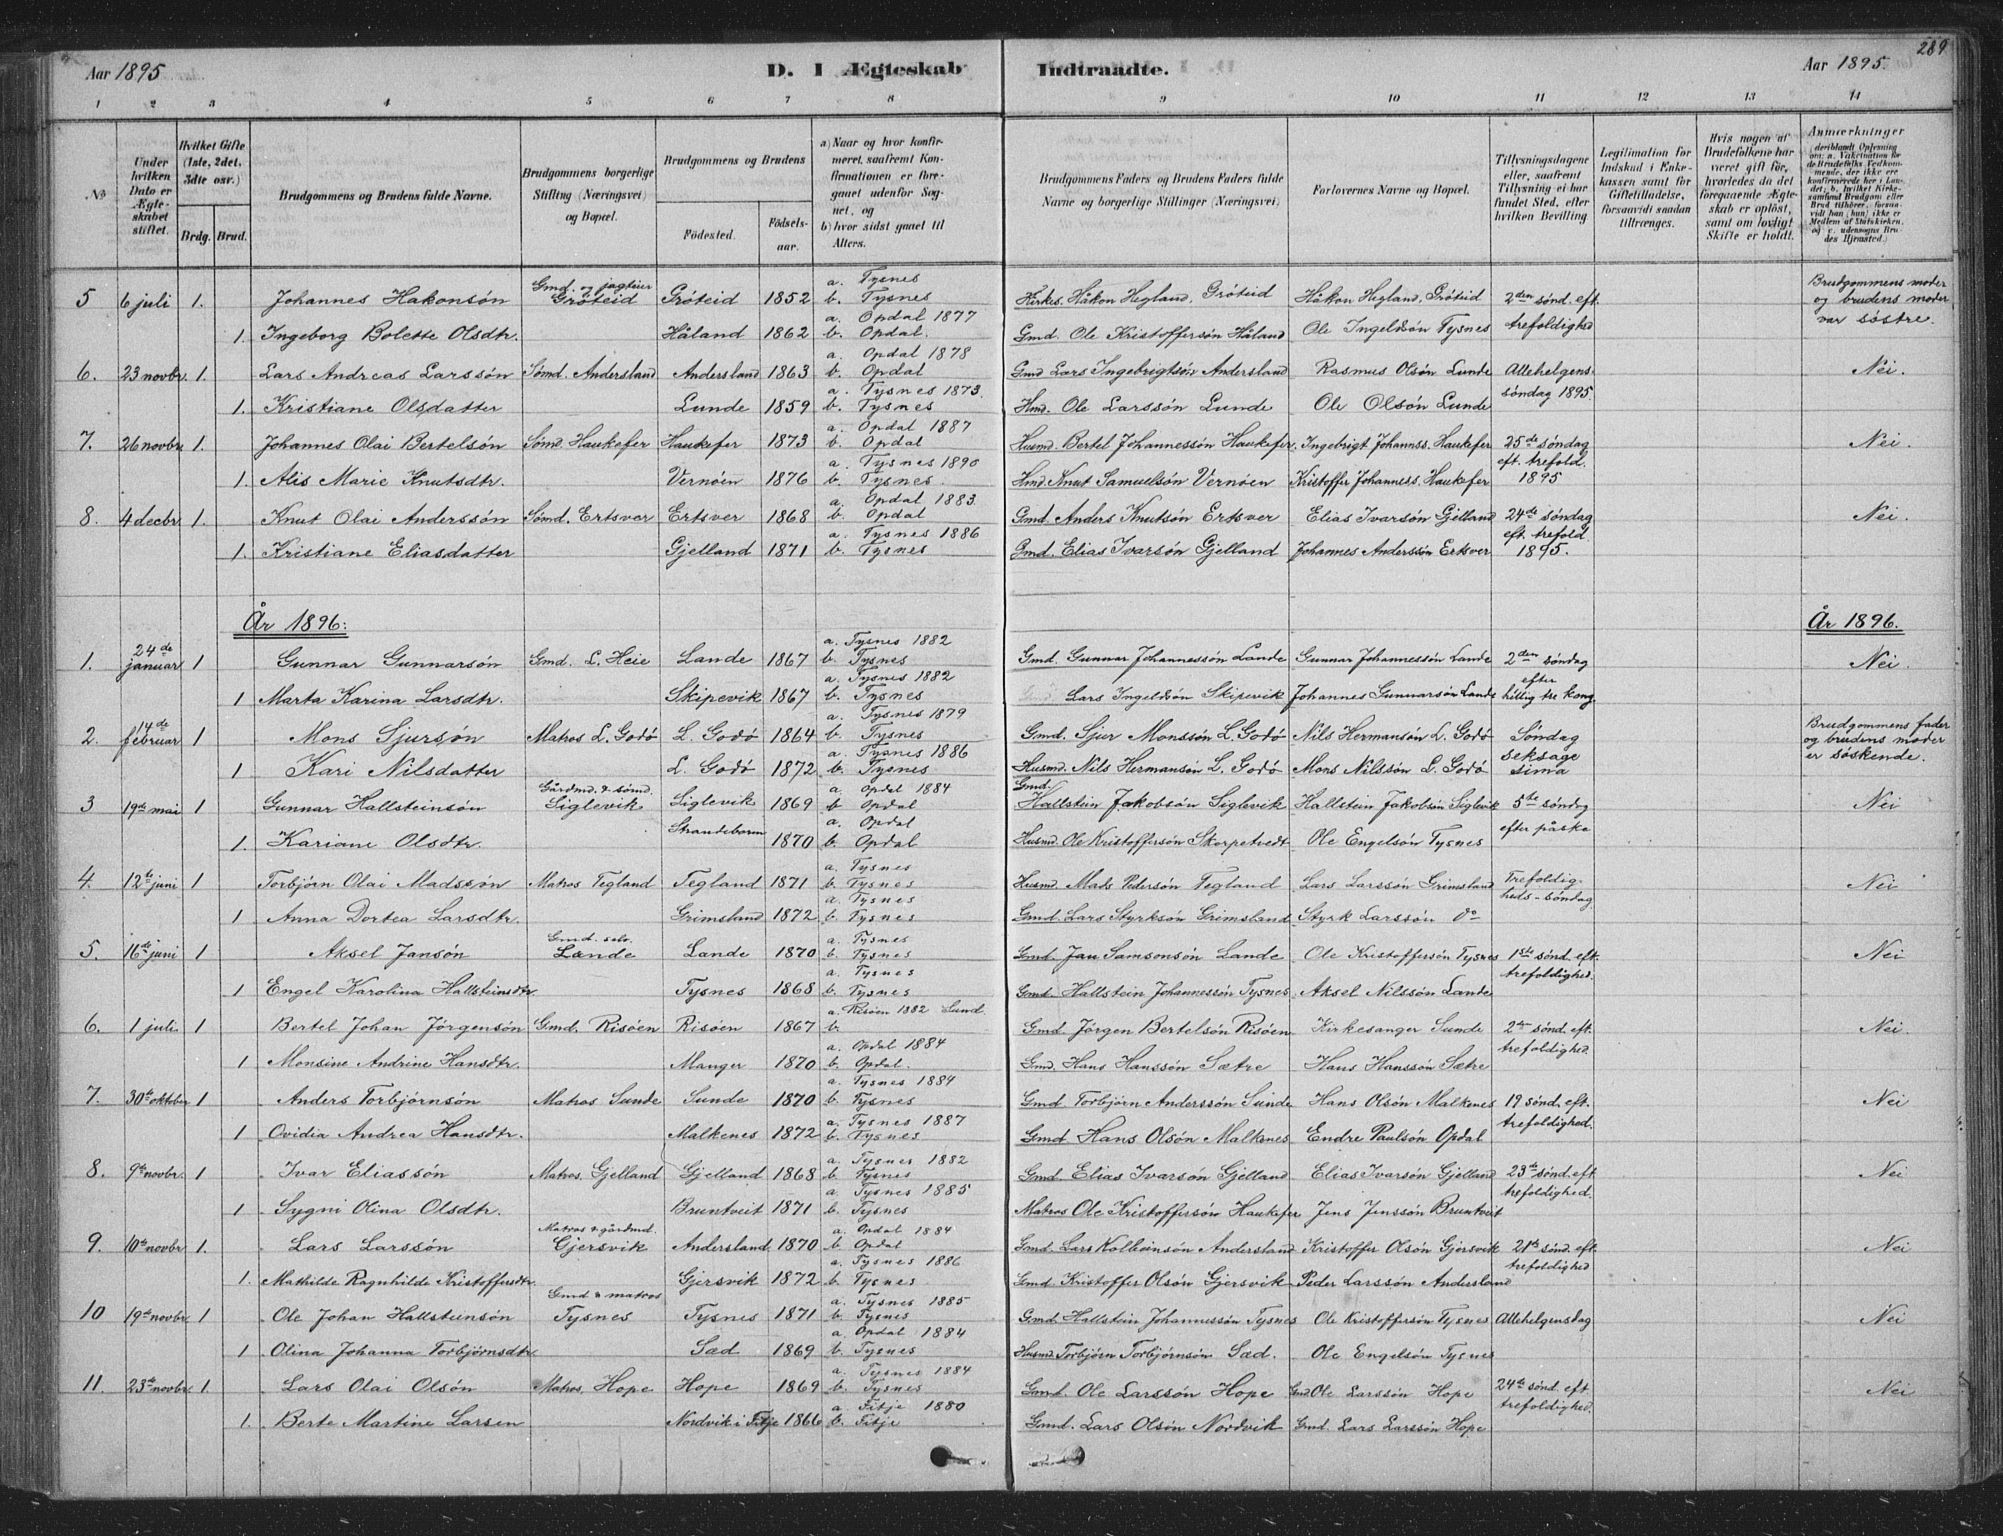 289
Aar 1895
D. I Ægteskab Indtraadte.
Aar 1895.
1 2 3 4 5 6 7 8 9 10 11 12 13 14
No
Under hvilken Dato er Ægteskabet stiftet.
Hvilket Gifte (1ste, 2det, 3die osv.)
Brdg. Brud.
Brudgommens og Brudens fulde Navne.
Brudgommens borgerlige Stilling (Næringsvei) og Bopæl.
Brudgommens og Brudens
Fødested.
Fødselsaar.
a) Naar og hvor konfirmeret, saafremt Konfirmationen er foregaaet udenfor Sognet, og
b) hvor sidst gaaet til Alters.
Brudgommens Faders og Brudens Faders fulde Navne og borgerlige Stillinger (Næringsvei)
Forlovernes Navne og Bopæl.
Tillysningsdagene eller, saafremt Tillysning ei har fundet Sted, efter hvilken Bevilling
Legitimation for Indskud i Enkekassen samt for Giftetilladelse, forsaavidt saadan tiltrænges.
Hvis nogen af Brudefolkene har været gift før, hvorledes da det foregaaende Ægteskab er opløst, samt om lovligt Skifte er holdt.
Anmærkninger (deriblandt Oplysning om: a. Vakcination for de Brudefolks Vedkommende, der ikke ere konfirmerede her i Landet; b. hvilket Kirkesamfund Brudgom eller Brud tilhører, forsaavidt han (hun) ikke er Medlem af Statskirken, og c. udensogns Brudes Hjemsted.)
5 6 juli 1. Johannes Hakonsøn Gmd. og jagteier Gróteid Gróteid 1852 a. Tysnes b. Tysnes Kirkes. Håkon Hegland, Gróteid Håkon Hegland, Gróteid 2den sønd. eft. trefoldighed Brudgommens moder og brudens moder var søstre.
1. Ingeborg Bolette Olsdtr. Håland 1862 a. Opdal 1877 b. Opdal. Gmd. Ole Kristoffersøn Håland Ole Ingeldsøn Tysnes
6. 23 novbr. 1. Lars Andreas Larssøn Sømd. Andersland Andersland 1863 a. Opdal 1878 b. Opdal Gmd Lars Ingebrigtsøn Andersland Rasmus Olsøn Lunde Allehelgens søndag 1895. Nei.
1. Kristiane Olsdatter Lunde 1859 a. Tysnes 1873. b. Tysnes Hmd. Ole Larssøn Lunde Ole Olsøn Lunde
7. 26 novbr 1. Johannes Olai Bertelsøn Sømd Haukefer Haukefer 1873 a. Opdal 1887 b. Opdal Husmd. Bertel Johannessøn Haukefer. Ingebrigt Johannss. Haukefer 25de søndag eft. trefold. 1895 Nei.
1. Alis Marie Knutsdtr. Vernøen 1876 a. Tysnes 1890 b. Tysnes. Hmd. Knut Samuelsøn Vernøen Kristoffer Johanness. Haukefer
8. 4 decbr. 1. Knut Olai Anderssøn Sømd. Ertsver Ertsver 1868 a. Opdal 1883. b. Opdal Gmd. Anders Knutsøn Ertsver Elias Ivarsøn Gjelland 24de søndag eft. trefold 1895. Nei.
1. Kristiane Eliasdatter Gjelland 1871 a. Tysnes 1886 b. Tysnes Gmd. Elias Ivarsøn Gjelland Johannes Anderssøn Ertsver
År 1896: År 1896.
1. 24de januar 1 Gunnar Gunnarsøn Gmd. L. Heie Lande 1867 a. Tysnes 1882 b. Tysnes Gmd. Gunnar Johannessøn Lande Gunnar Johannessøn Lande 2den søndag efter hellig tre kong Nei.
1 Marta Karina Larsdtr. Skipevik 1867 a. Tysnes 1882 b. Tysnes Lars Ingeldsøn Skipevik Johannes Gunnarsøn Lande
2. 14de februar 1 Mons Sjursøn Matros L. Godø L. Godø 1864 a. Tysnes 1879 b. Tysnes Gmd. Sjur Monssøn L. Godø Nils Hermansøn L. Godø Søndag seksagesima Brudgommens fader og brudens moder er søskende.
1 Kari Nilsdatter L. Godø 1872 a. Tysnes 1886 b. Tysnes Husmd. Nils Hermansøn L. Godø Mons Nilssøn L. Godø
3 19de mai 1 Gunnar Hallsteinsøn Gårdmd. & sømd. Siglevik Siglevik 1869 a. Opdal 1884 b. Opdal Gmd. Hallstein Jakobsøn Siglevik Hallstein Jakobsøn Siglevik 5te søndag efter påske Nei
1. Kariane Olsdtr. 1870 a. Opdal b. Opdal Husmd. Ole Kristoffersøn Skorpetvedt Ole Engelsøn Tysnes
4. 12te juni 1 Torbjørn Olai Madssøn Matros Tegland Tegland 1871 a. Tysnes b. Tysnes Husmd. Mads Pedersøn Tegland Lars Larssøn Grimsland Trefoldigheds-søndag. Nei
1 Anna Dortea Larsdtr. Grimsland 1872 a. Tysnes b. Tysnes Gmd. Lars Styrksøn Grimsland Styrk Larssøn do
5. 16de juni 1 Aksel Jansøn Gmd. selv. Lande Lande 1870 a. Tysnes b. Tysnes Gmd. Jan Samsonsøn Lande Ole Kristoffersøn Tysnes 1ste sønd. eft. trefoldighed. Nei
1 Engel Karolina Hallsteinsdtr. Tysnes 1868 a. Tysnes b. Tysnes Gmd. Hallstein Johannessøn Tysnes Aksel Nilssøn Lande
6. 1 juli. 1 Bertel Johan Jörgensøn Gmd. Risøen Risøen 1867 a. Risøen 1882 Sund. b. Gmd. Jörgen Bertelsøn Risøen Kirkesanger Sunde 2den sønd. eft. trefoldighed. Nei.
1 Monsine Andrine Hansdtr. Manger 1870 a. Opdal 1884 b. Opdal. Gmd. Hans Hanssøn Sætre Hans Hanssøn Sætre
7. 30te oktober 1 Anders Torbjørnsøn Matros Sunde Sunde 1870 a. Tysnes 1884 b. Tysnes Gmd Torbjørn Anderssøn Sunde Hans Olsøn Malkenes 19 sønd. eft. trefoldighed. Nei
1 Ovidia Andrea Hansdtr. Malkenes 1872 a. Tysnes 1887 b. Tysnes Gmd. Hans Olsøn Malkenes Endre Paulsøn Opdal
8. 9de novbr. 1 Ivar Eliassøn Matros. Gjelland Gjelland 1868 a. Tysnes 1882 b. Tysnes Gmd. Elias Ivarsøn Gjelland Elias Ivarsøn Gjelland 23de sønd. eft trefoldighed. Nei
1 Sygni Olina Olsdtr. Bruntveit 1871 a. Tysnes 1885 b. Tysnes Matros Ole Kristoffersøn Haukefer Jens Jenssøn Bruntveit
9. 10de novbr 1. Lars Larssøn Matros & gårdmd. Gjersvik Andersland 1870 a. Opdal 1884 b. Opdal Gmd. Lars Kolbeinsøn Andersland Kristoffer Olsøn Gjersvik 21de sønd. eft. trefoldighed Nei
1. Mathilde Ragnhilde Kristoffersdtr. Gjersvik 1872 a. Tysnes 1886 b. Tysnes Gmd. Kristoffer Olsøn Gjersvik Peder Larssøn Andersland
10 19de novbr 1 Ole Johan Hallsteinsøn Gmd & matros Tysnes Tysnes 1871 a. Tysnes 1885 b. Tysnes Gmd. Hallstein Johannessøn Tysnes Ole Kristoffersøn Tysnes Allehelgensdag Nei
1 Olina Johanna Torbjørnsdtr. Sæd 1869 a. Opdal 1884 b. Tysnes Husmd. Torbjørn Torbjørnsøn Sæd. Ole Engelsøn Tysnes
11. 23de novbr. 1. Lars Olai Olsøn Matros, Hope Hope 1869 a. Tysnes 1884 b. Tysnes Gmd. Ole Larssøn Hope Gmd Ole Larssøn Hope 24de sønd. eft trefoldighed. Nei
1. Berte Martine Larsen Nordvik i Fitje 1866 a. Fitje 1880 b. Fitje Gmd. Lars Olsøn Nordvik Gmd. Lars Larssøn Hope